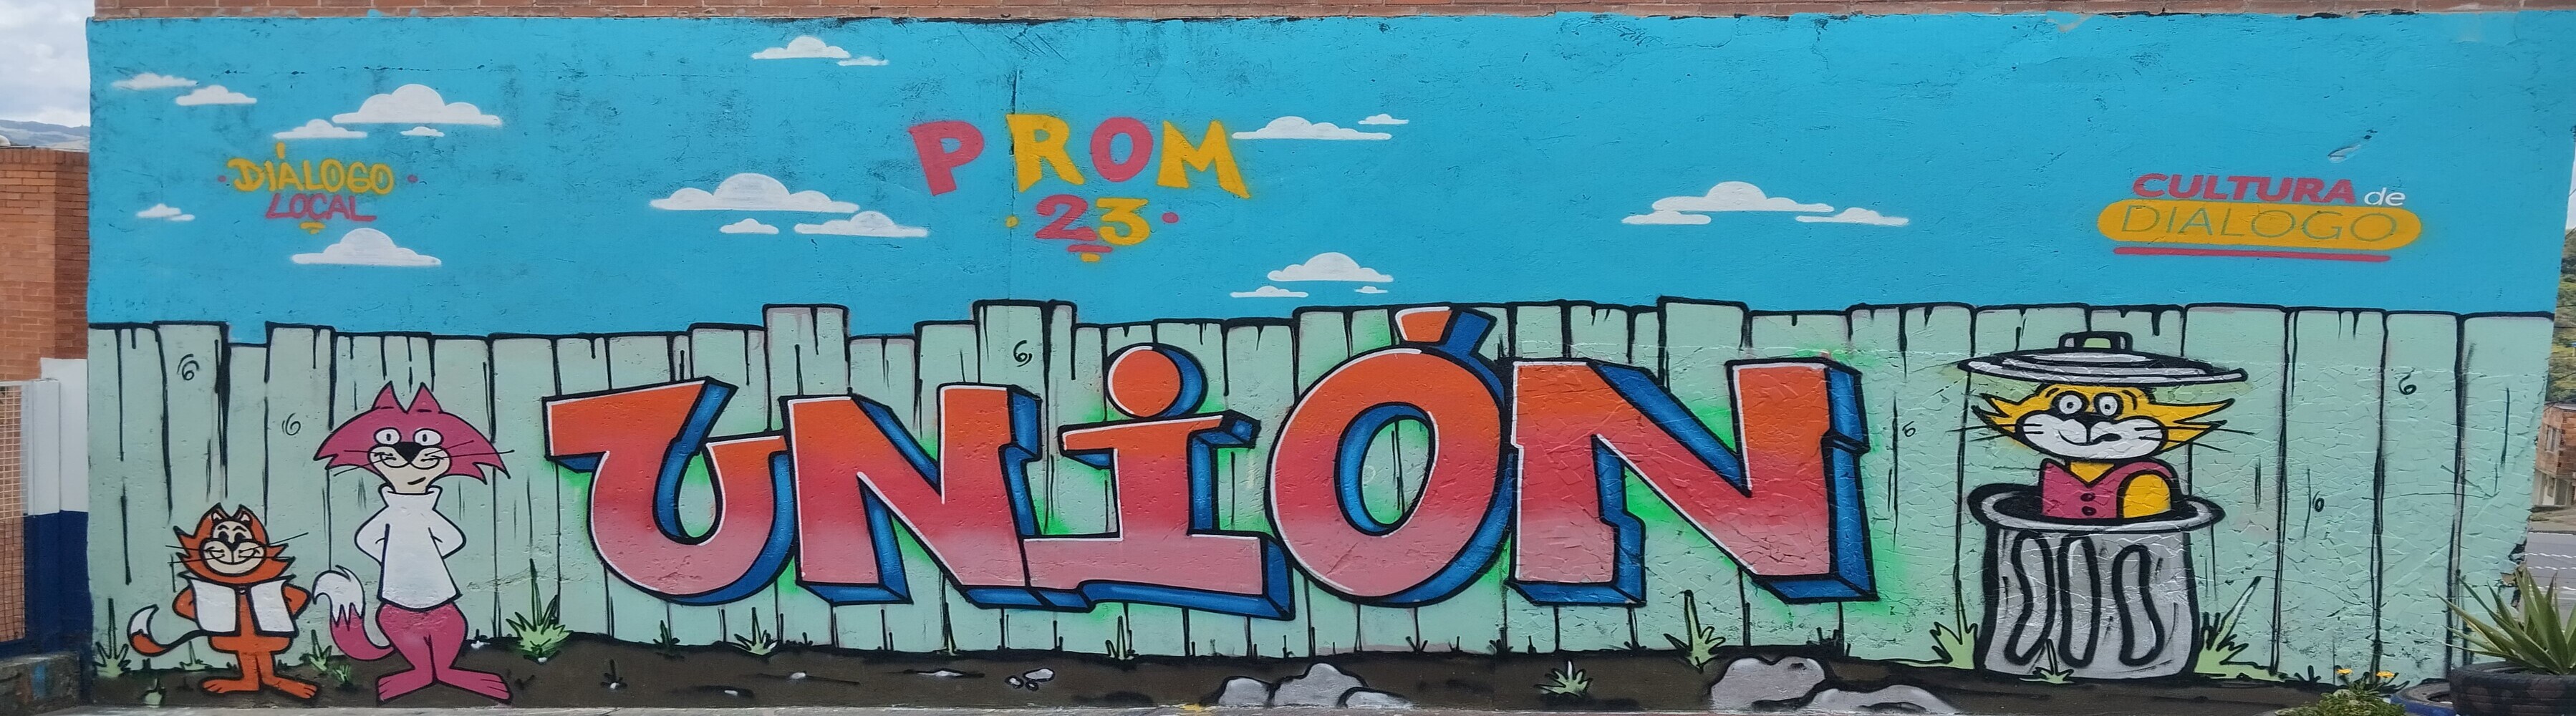 DIÁLOGO
LOCAL
PROM
23
CULTURA de
DIALOGO
UNiÓN